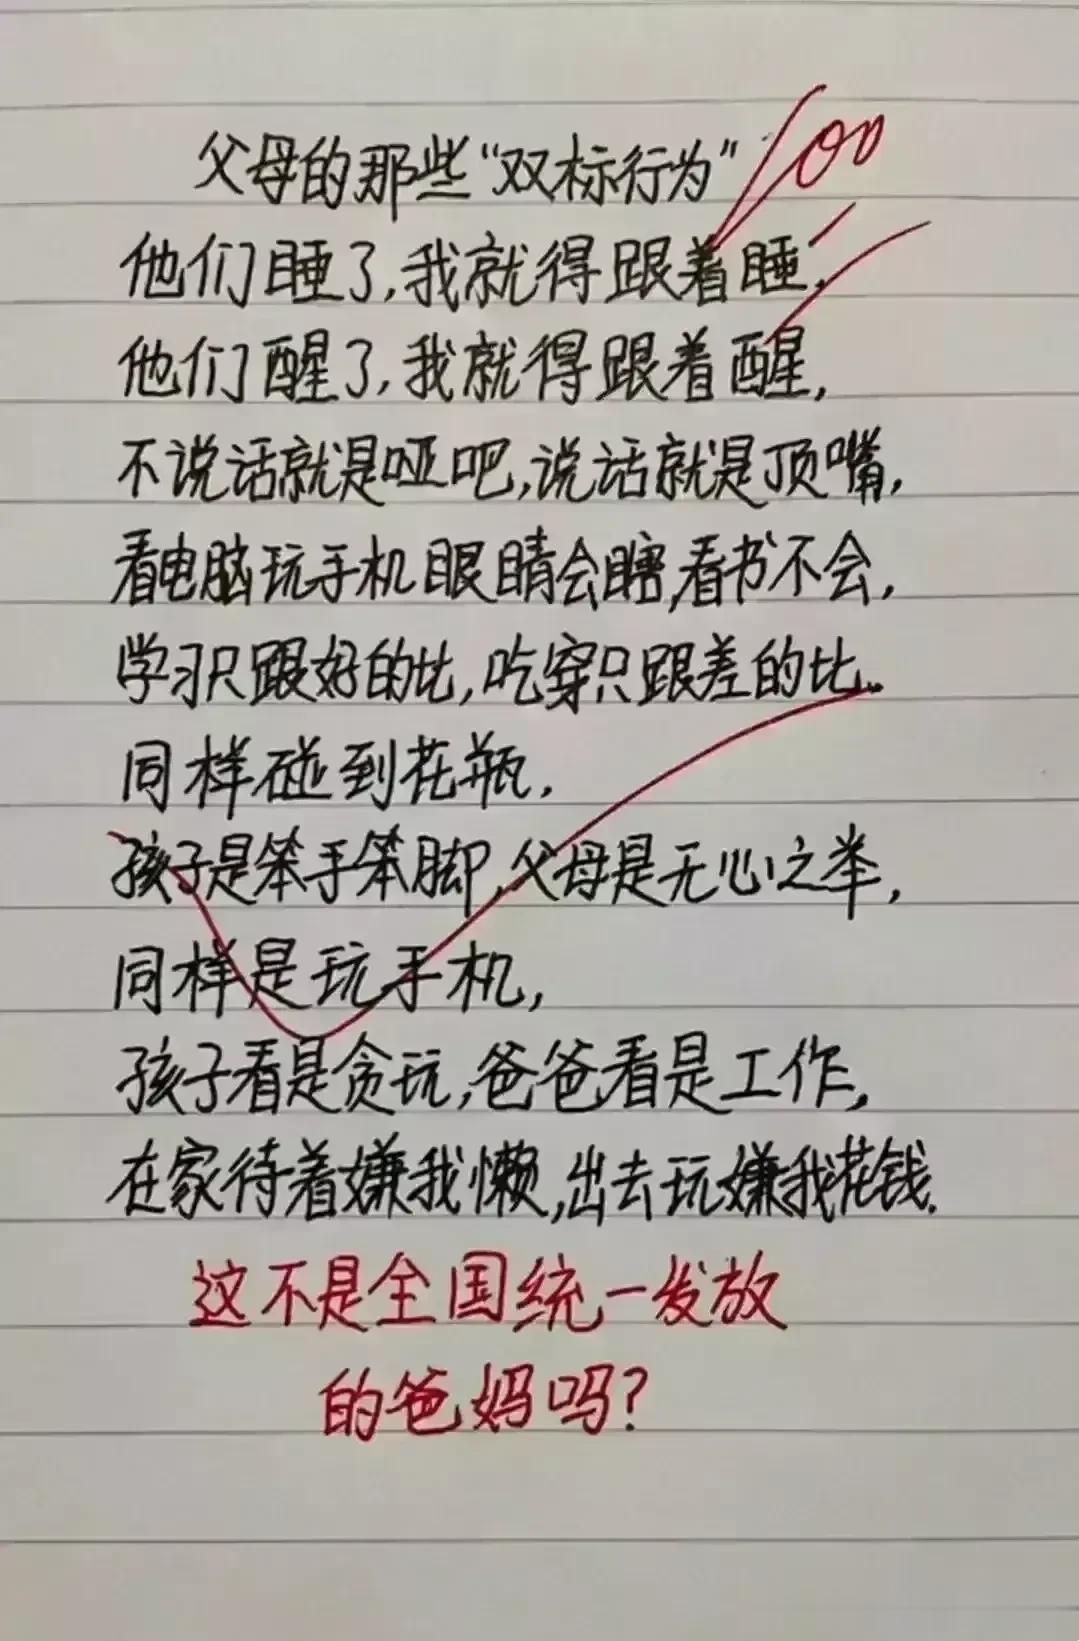 父母的那些“双标行为” 100
他们睡了,我就得跟着睡,
他们醒了,我就得跟着醒,
不说话就是哑吧,说话就是顶嘴,
看电脑玩手机眼睛会瞎,看书不会,
学习只跟好的比,吃穿只跟差的比。
同样碰到花瓶,
孩子是笨手笨脚,父母是无心之举,
同样是玩手机,
孩子看是贪玩,爸爸看是工作,
在家待着嫌我懒,出去玩嫌我花钱.
这不是全国统一发放
的爸妈吗?